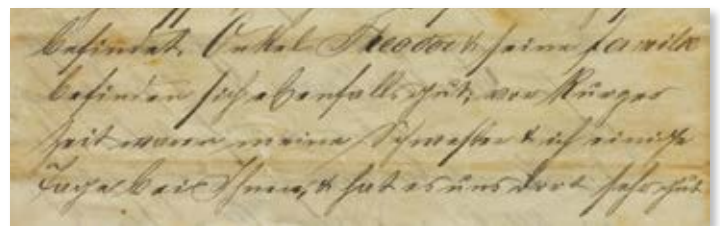 befindet. Onkel Theodor & seine Familie
befinden sich ebenfalls gut, vor kurzer
Zeit waren meine Schwester & ich einige
Tage bei Ihnen, & hat es uns dort sehr gut